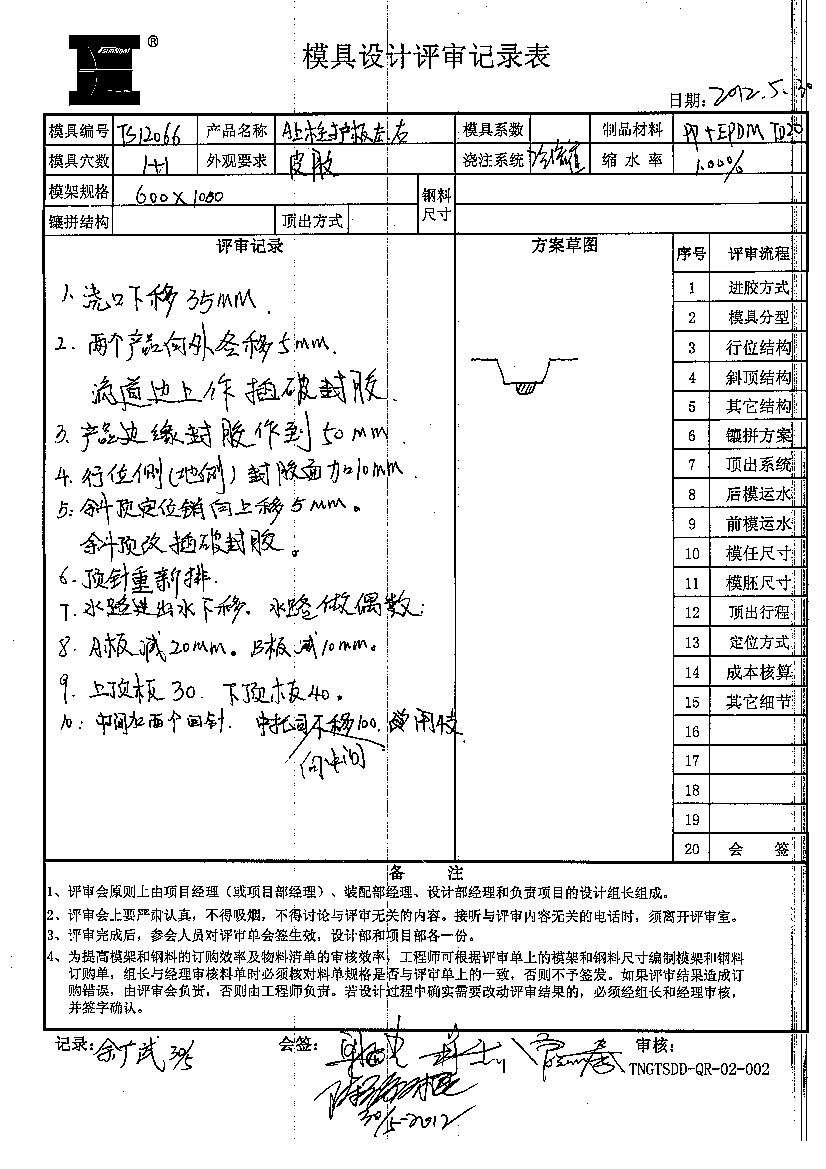 ®
模具设计评审记录表
日期: 2012.5.30
模具编号 TS12066 产品名称 A上柱护板左右 模具系数 制品材料 PP+EPDM TD20
模具穴数 1+1 外观要求 皮纹 浇注系统 缩水率 1.00%
模架规格 600×1050 钢料尺寸
镶拼结构 顶出方式
评审记录 方案草图 序号 评审流程
1、浇口下移35mm.
2. 两个产品向外各移5mm.
流道边上作插破封胶.
3. 产品边缘封胶作到50mm.
4. 行位侧(地侧)封胶面加10mm.
5: 斜顶定位销向上移5mm。
斜顶改插破封胶。
6. 顶针重新排.
7. 水路进出水下移. 水路做偶数;
8. A板减20mm。B板减10mm。
9. 上顶板30. 下顶板40。
10: 中间加两个回针. 中托司不移100.
向中间
1 进胶方式
2 模具分型
3 行位结构
4 斜顶结构
5 其它结构
6 镶拼方案
7 顶出系统
8 后模运水
9 前模运水
10 模任尺寸
11 模胚尺寸
12 顶出行程
13 定位方式
14 成本核算
15 其它细节
16
17
18
19
20 会 签
备 注
1、评审会原则上由项目经理（或项目部经理）、装配部经理、设计部经理和负责项目的设计组长组成。
2、评审会上要严肃认真，不得吸烟，不得讨论与评审无关的内容。接听与评审内容无关的电话时，须离开评审室。
3、评审完成后，参会人员对评审单会签生效，设计部和项目部各一份。
4、为提高模架和钢料的订购效率及物料清单的审核效率，工程师可根据评审单上的模架和钢料尺寸编制模架和钢料
订购单，组长与经理审核料单时必须核对料单规格是否与评审单上的一致，否则不予签发。如果评审结果造成订
购错误，由评审会负责，否则由工程师负责。若设计过程中确实需要改动评审结果的，必须经组长和经理审核，
并签字确认。
记录: 余广武 30/5 会签: 审核:
TNGTSDD-QR-02-002
30/5-2012